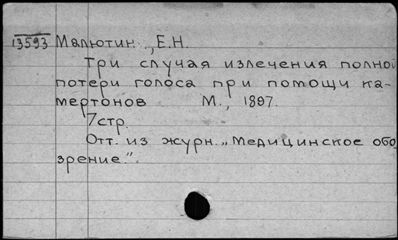 13593 Малютин, Е.Н.
Три случая излечения полной
потери голоса при помощи ка-
мертонов М., 1897.
7стр.
Отт. из журн. „Медицинское обо
зрение".